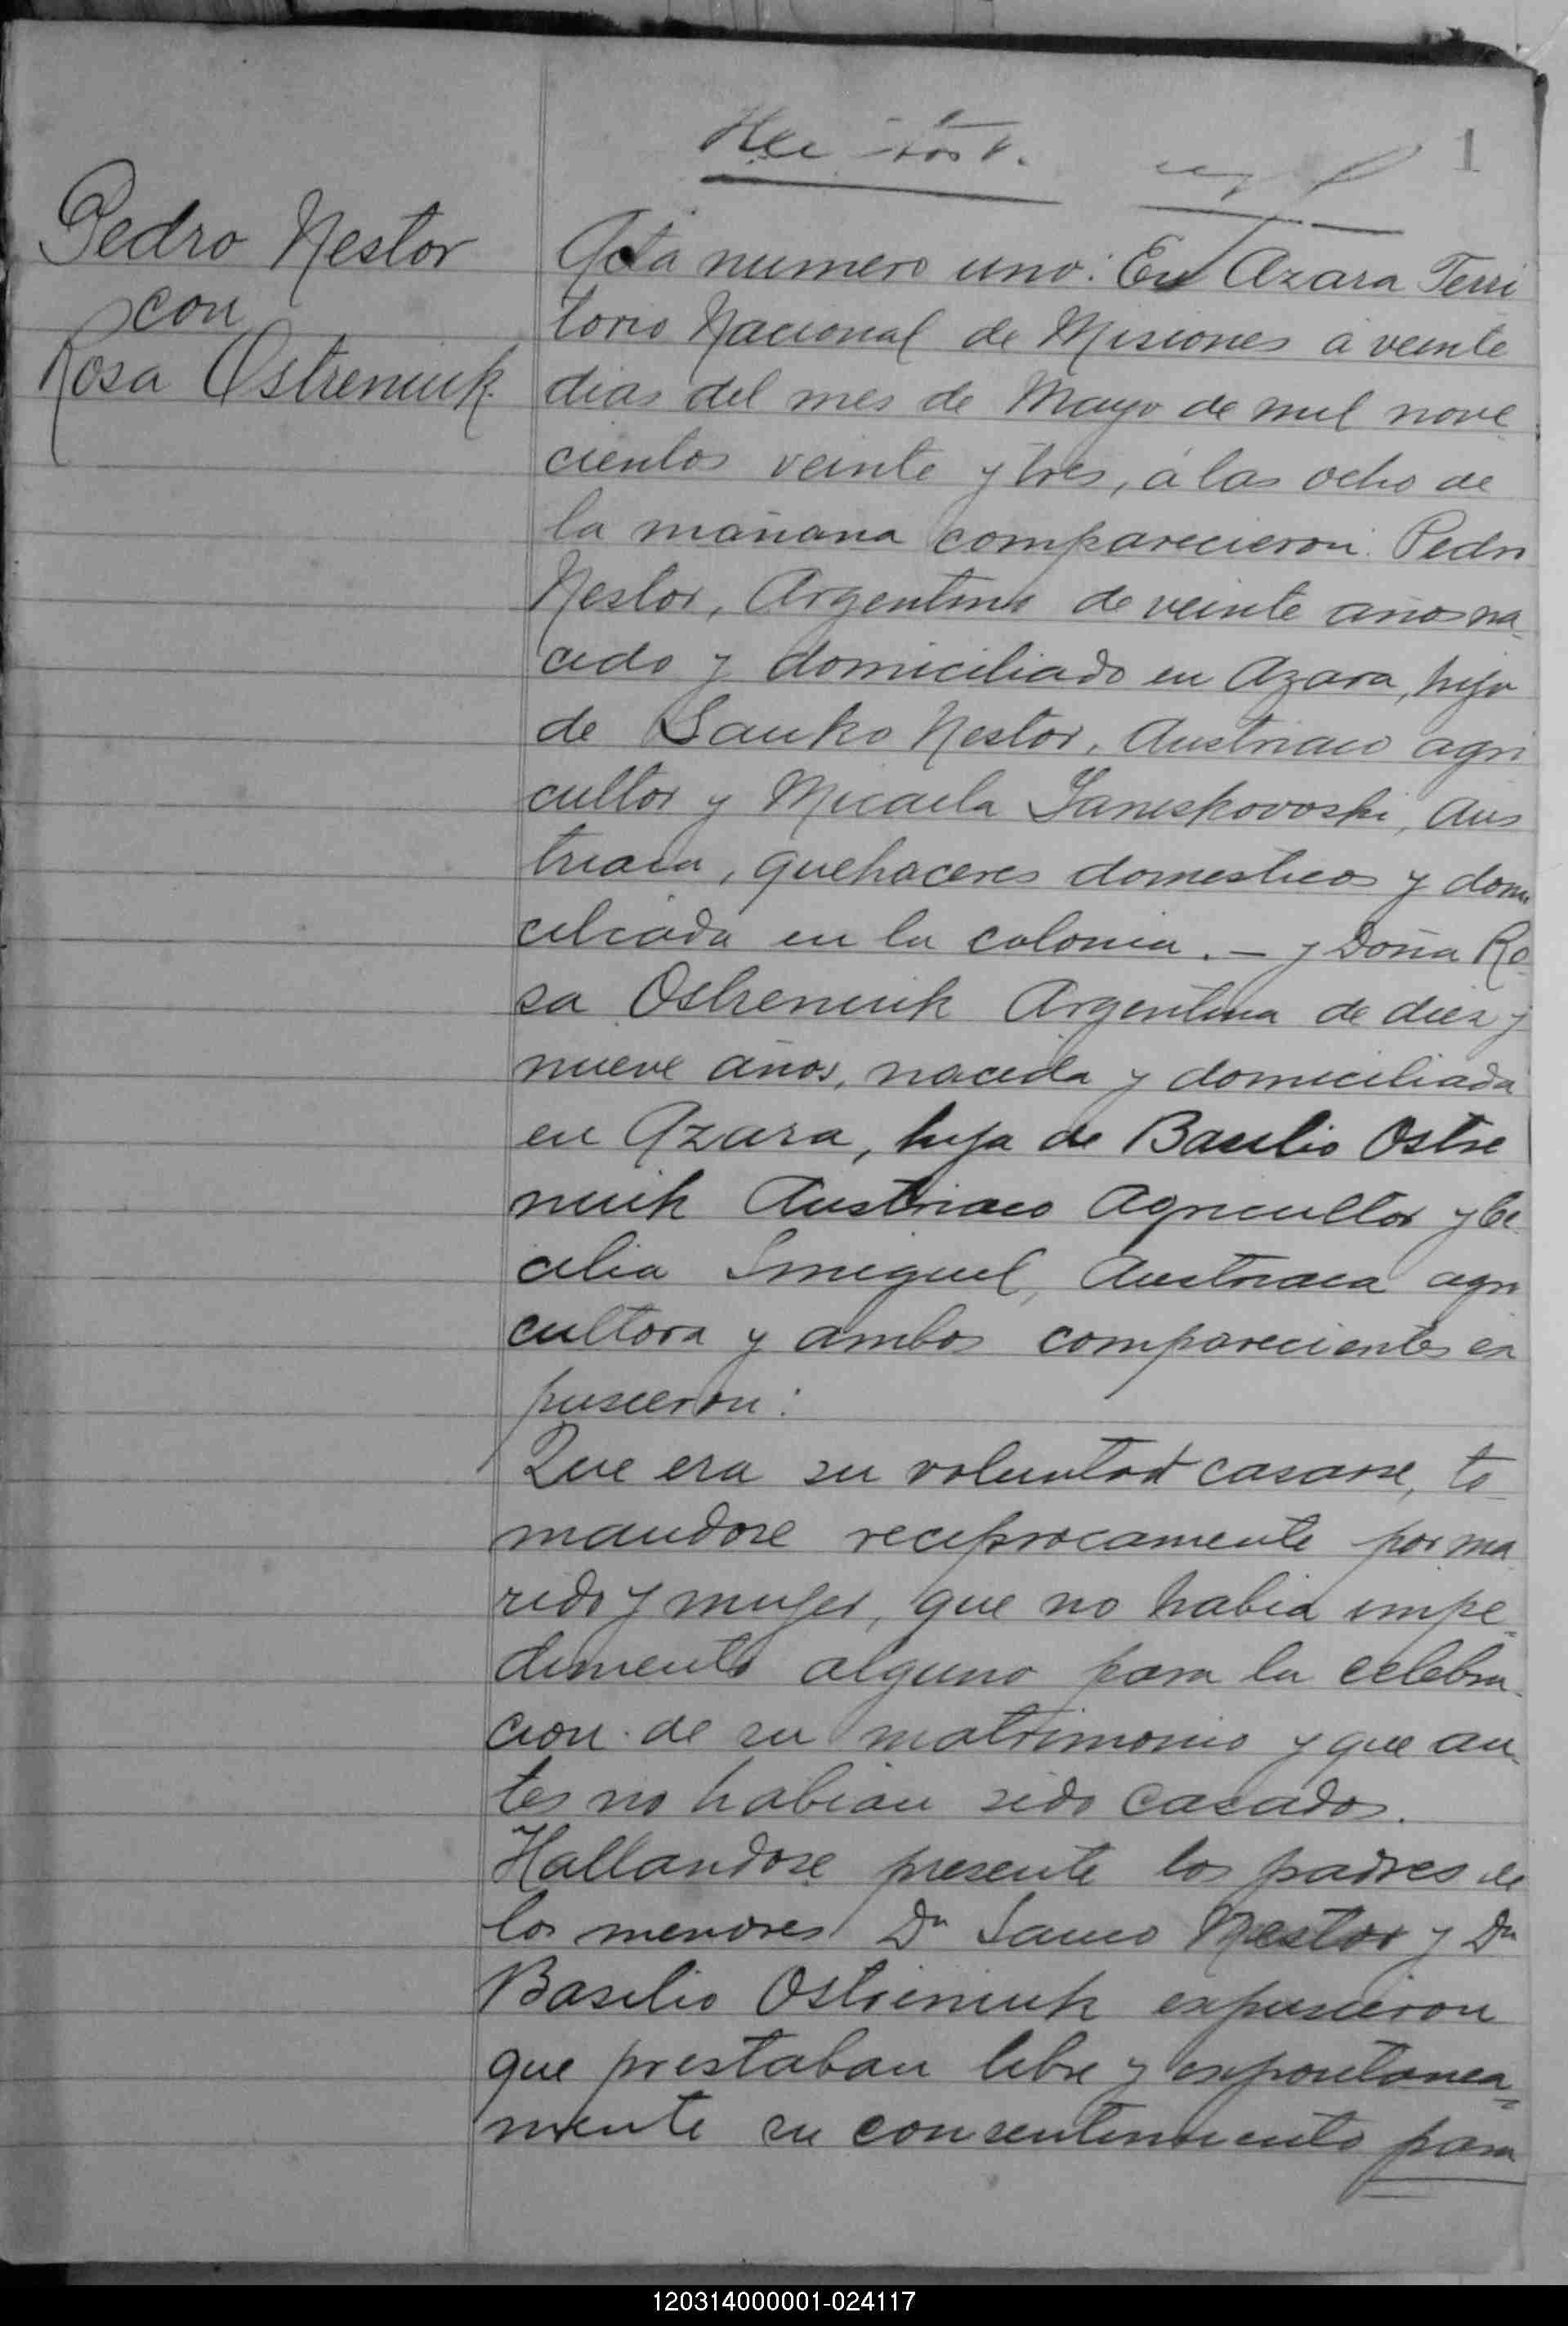 1
Pedro Nestor
con
Rosa Ostreniuk.
Acta numero uno: En Azara Terri
torio Nacional de Misiones a veinte
dias del mes de Mayo de mil nove
cientos veinte y tres, á las ocho de
la mañana comparecieron: Pedro
Nestor, Argentino de veinte años na
cido y domiciliado en Azara, hijo
de Sanko Nestor, Austriaco agri
cultor y Micaela Aus
triaca, quehaceres domesticos y domi
ciliada en la colonia. — y Doña Ro
sa Ostreniuk Argentina de diez y
nueve años, nacida y domiciliada
en Azara, hija de Basilio Ostre
niuk Austriaco Agricultor y Ce
cilia Smiguel, Austriaca agri
cultora y ambos comparecientes ex
pusieron:
Que era su voluntad casarse, to
mandose reciprocamente por ma
rido y mujer, que no habia impe=
dimento alguno para la celebra
cion de su matrimonio y que an
tes no habian sido casados.
Hallandose presente los padres de
los menores Dn Nestor y Dn
Basilio Ostreniuk expusieron
que prestaban libre y expontanea=
mente su consentimiento para
120314000001-024117